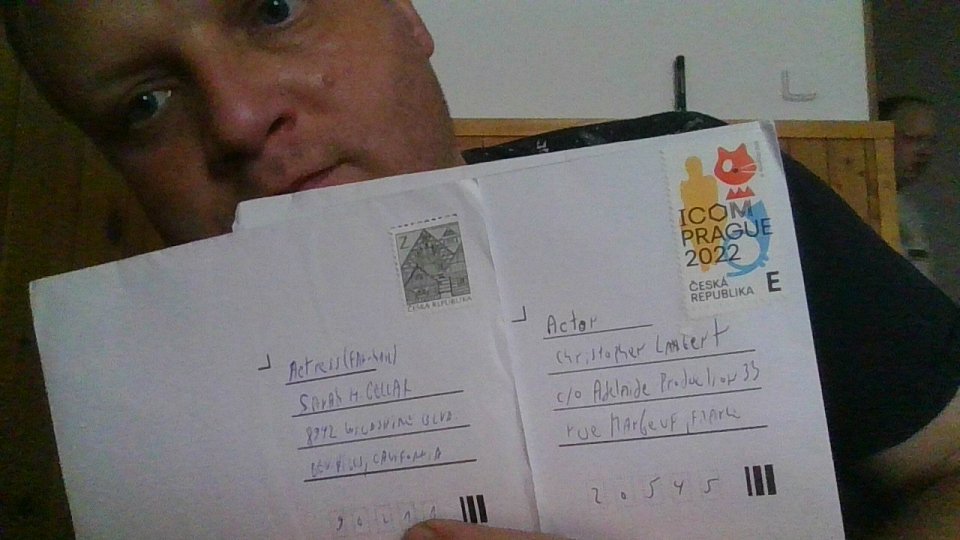 Z
ČESKÁ REPUBLIKA
Actress (Fan mail)
SARAH M. GELLAR
8942 WILDSHIRE BLVD.
CALIFORNIA
ICOM
PRAGUE
2022
ČESKÁ
REPUBLIKA
E
Actor
Christopher Lambert
c/o Adelaide Production 33
rue Marbeuf, FRANCE
2 0 5 4 5